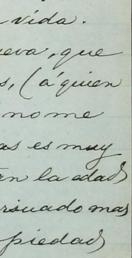 vida.
eva, que
s, (á quien
no me
as es muy
en la edad
rsuado mas
piedad